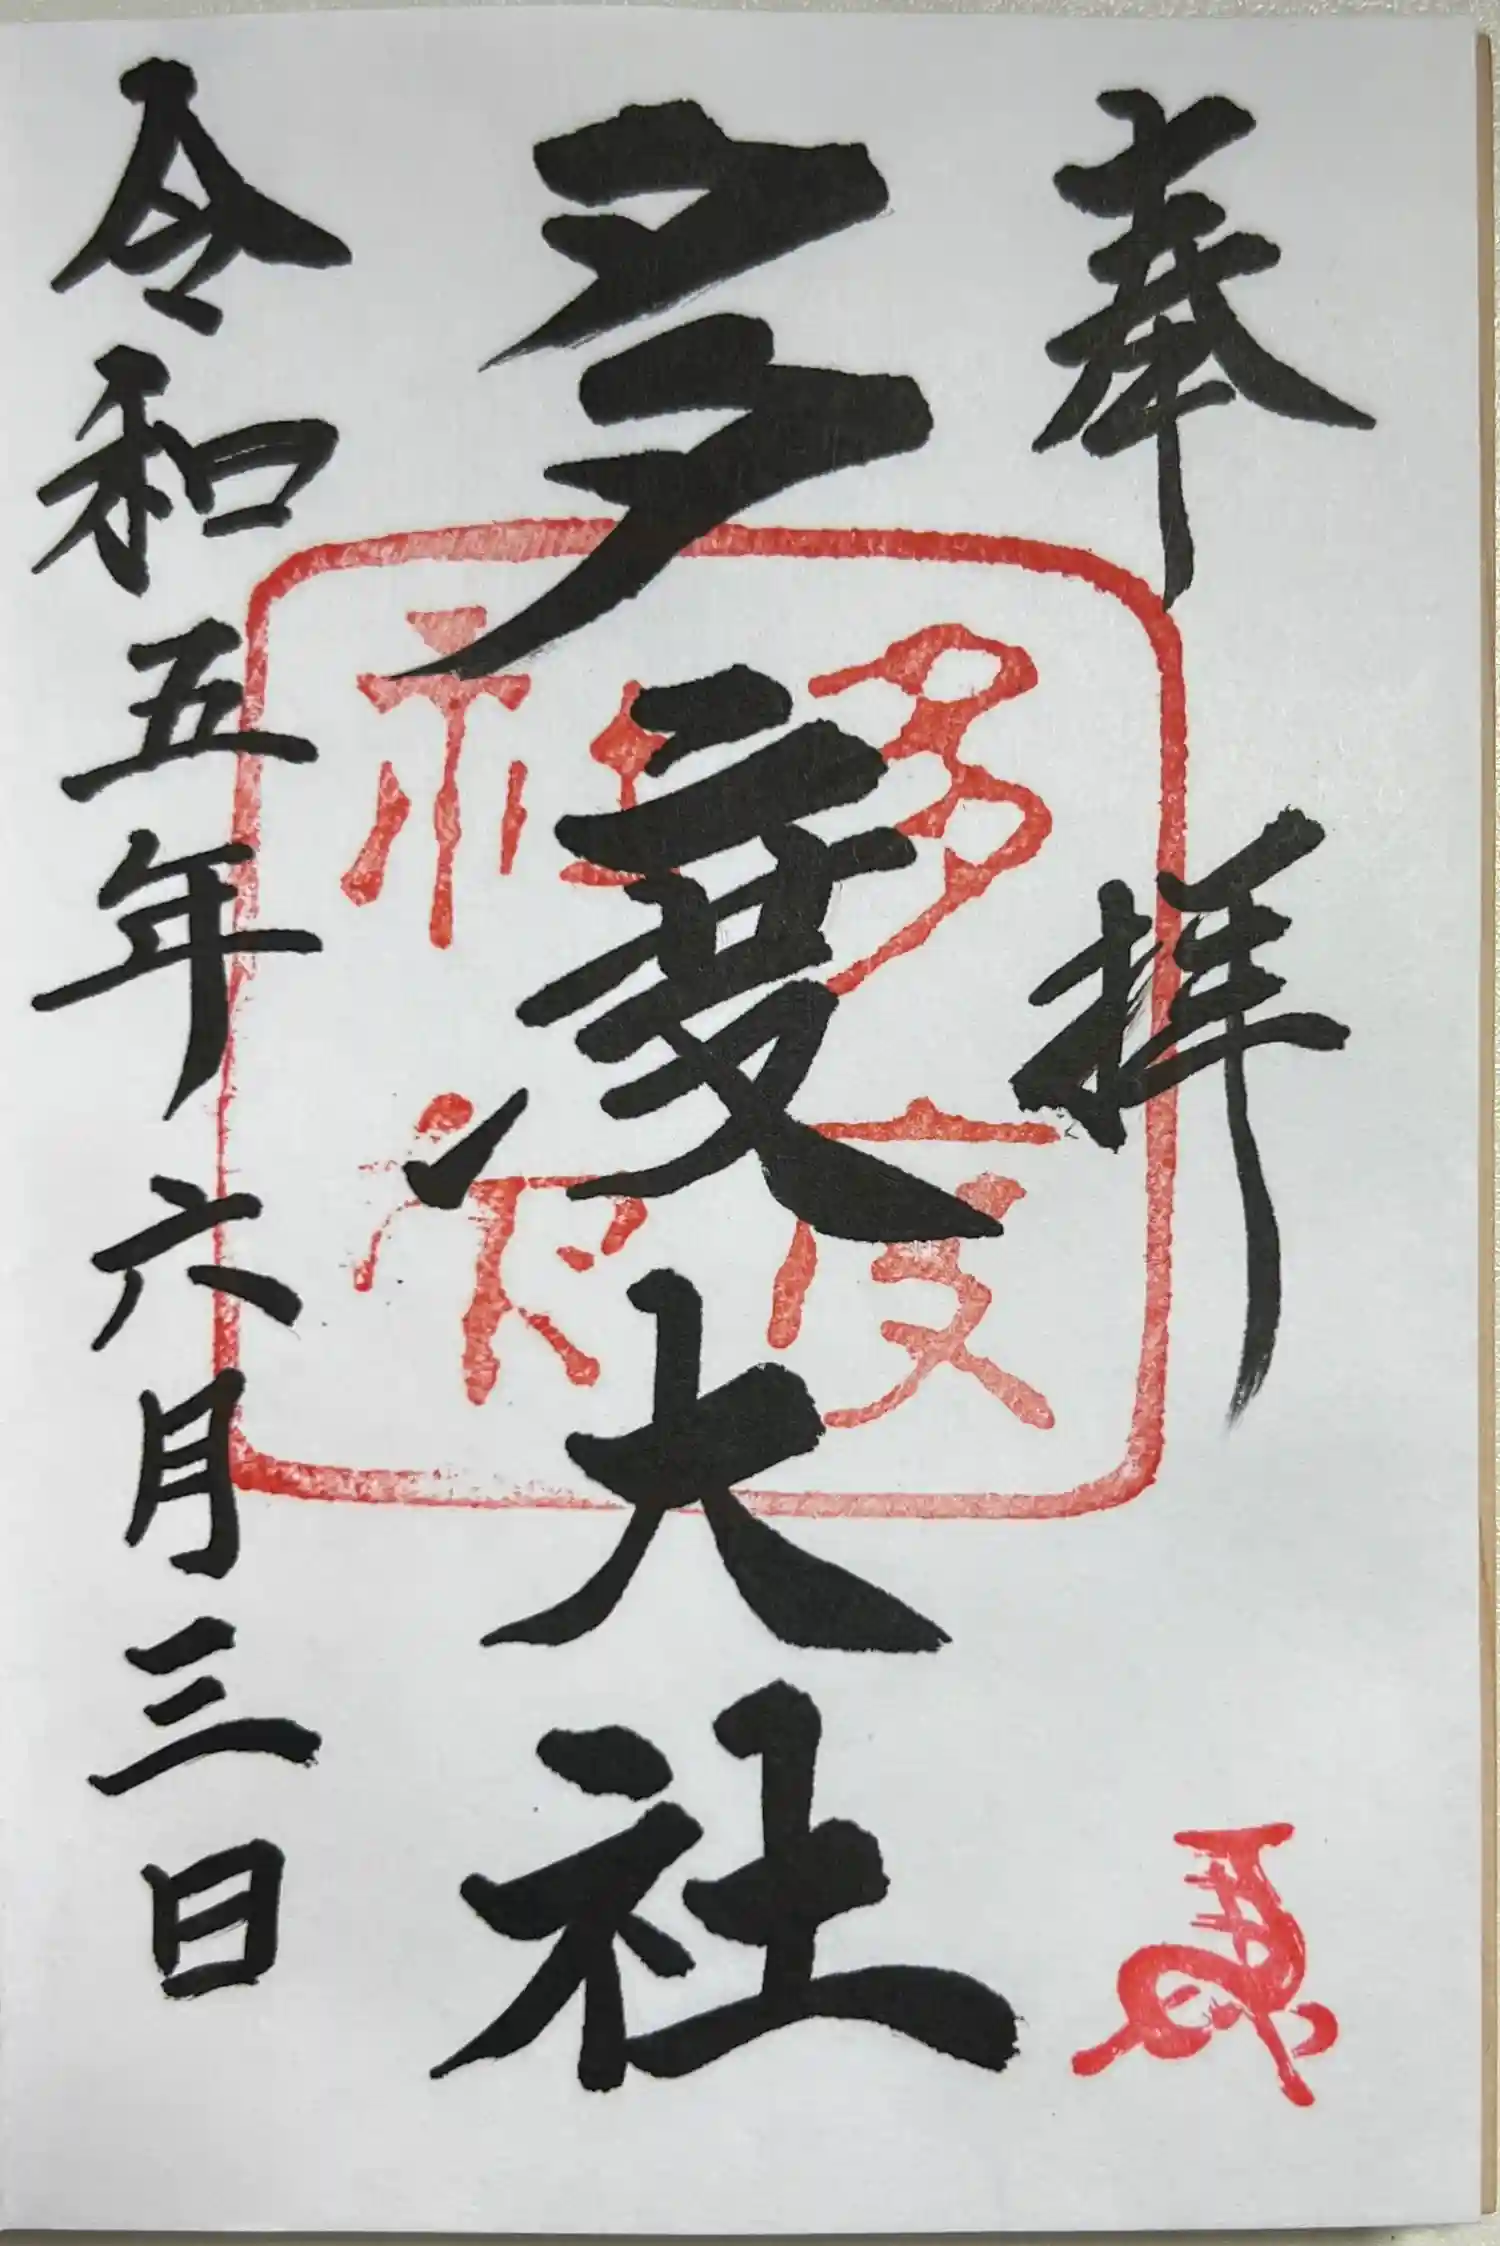 奉拝
多度大社
令和五年六月三日
多度
神社
馬